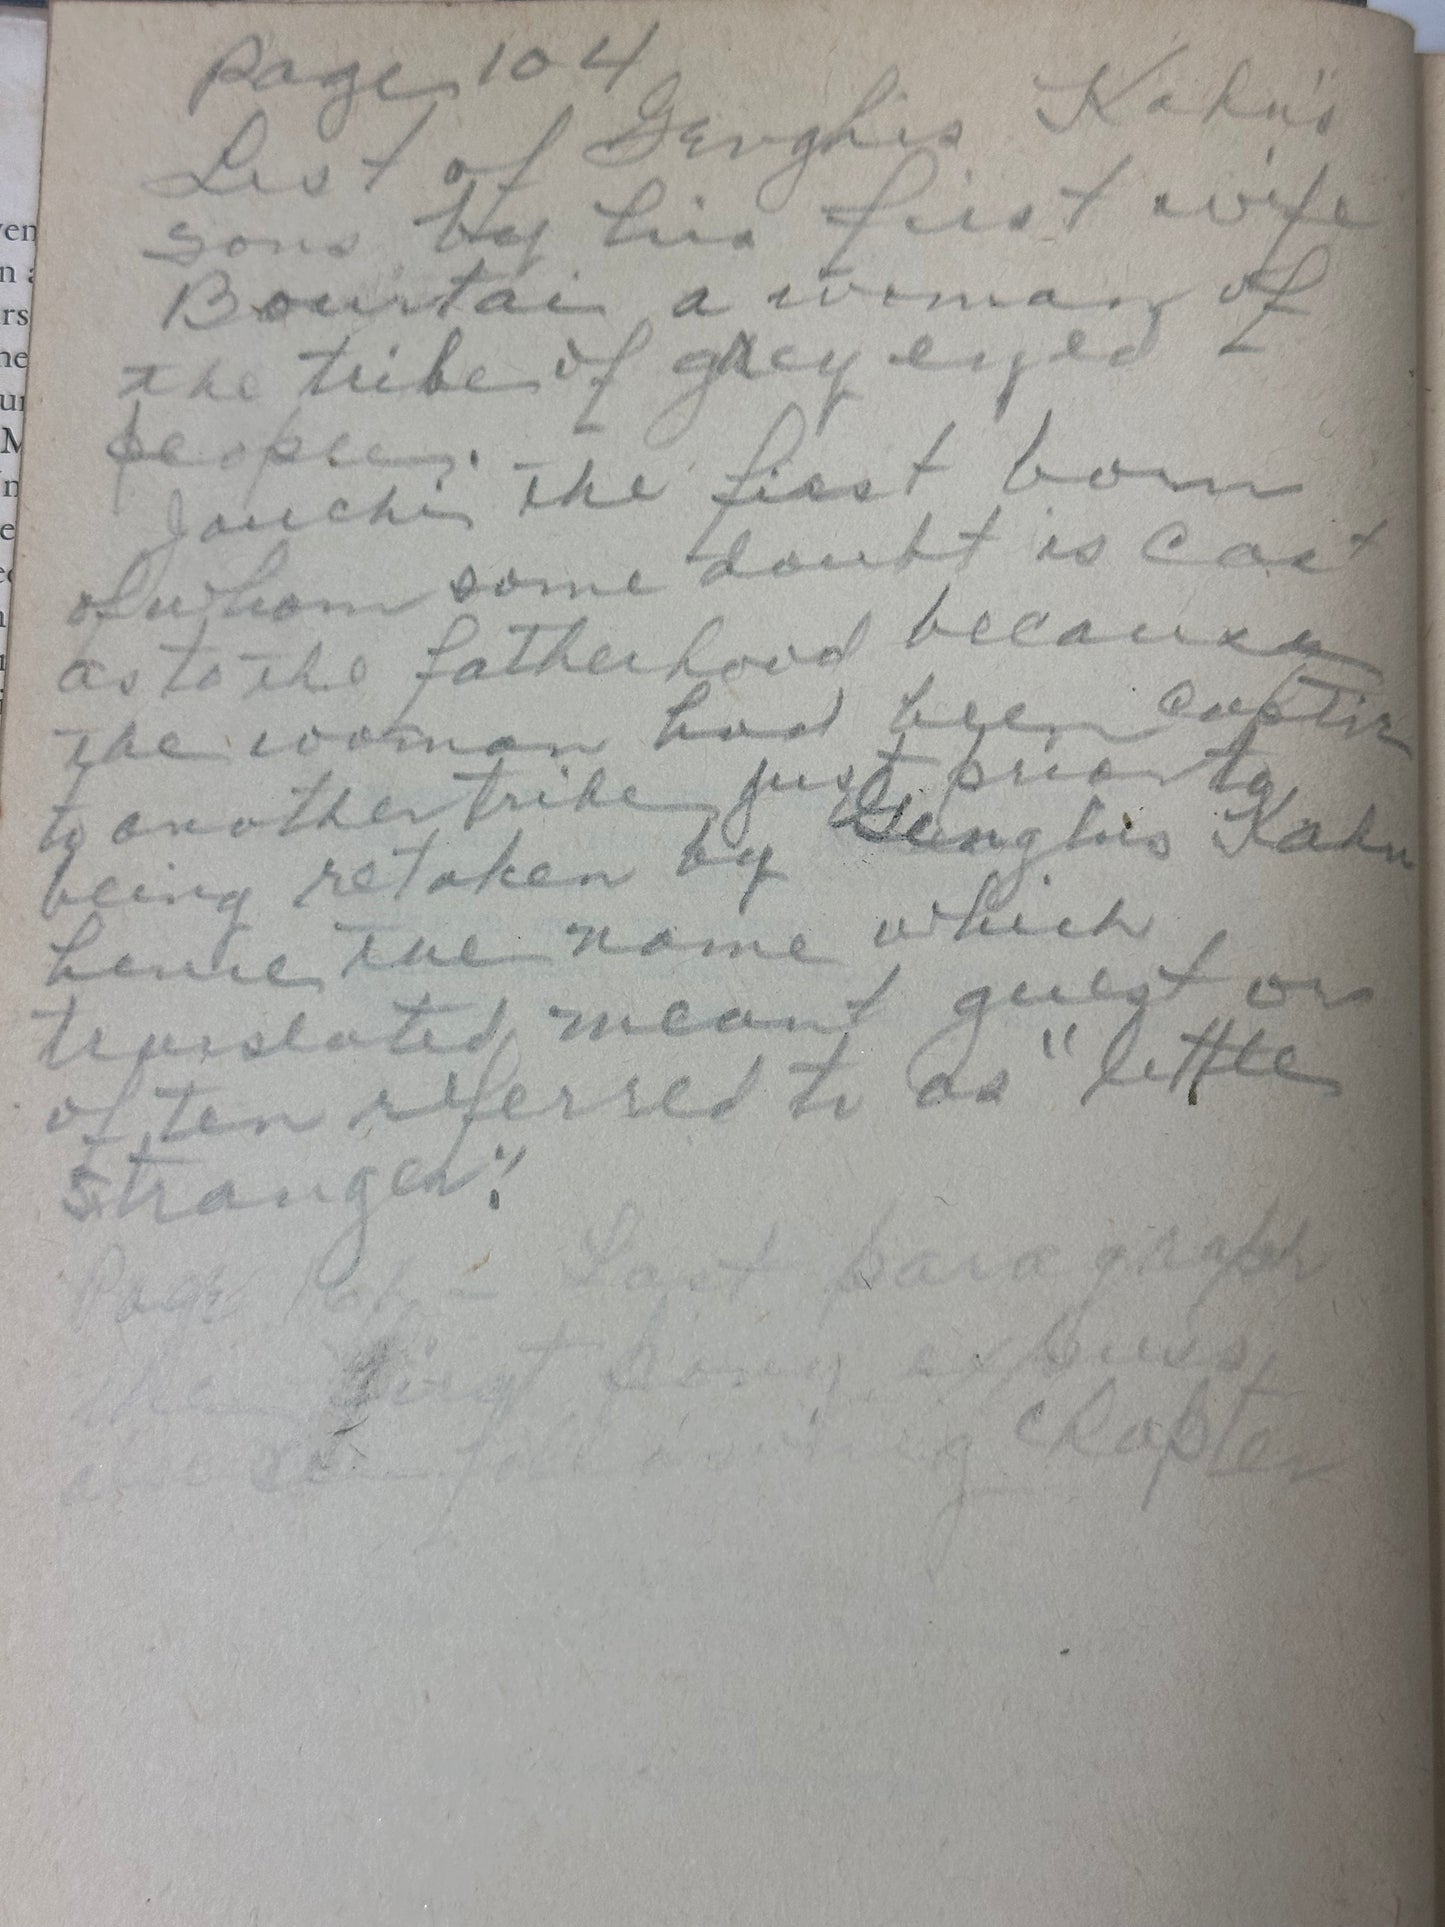 Page 104
List of Genghis Kahn's
sons by his first wife
Bourtai a woman of
the tribe of grey eyed
people.
Jouchi the first born
of whom some doubt is cast
as to the fatherhood because
the woman had been captive
to another tribe just prior to
being retaken by Genghis Kahn
hence the name which
translated meant guest or
often referred to as "little
stranger".
Page - Last paragraph
the first pony express
following chapter